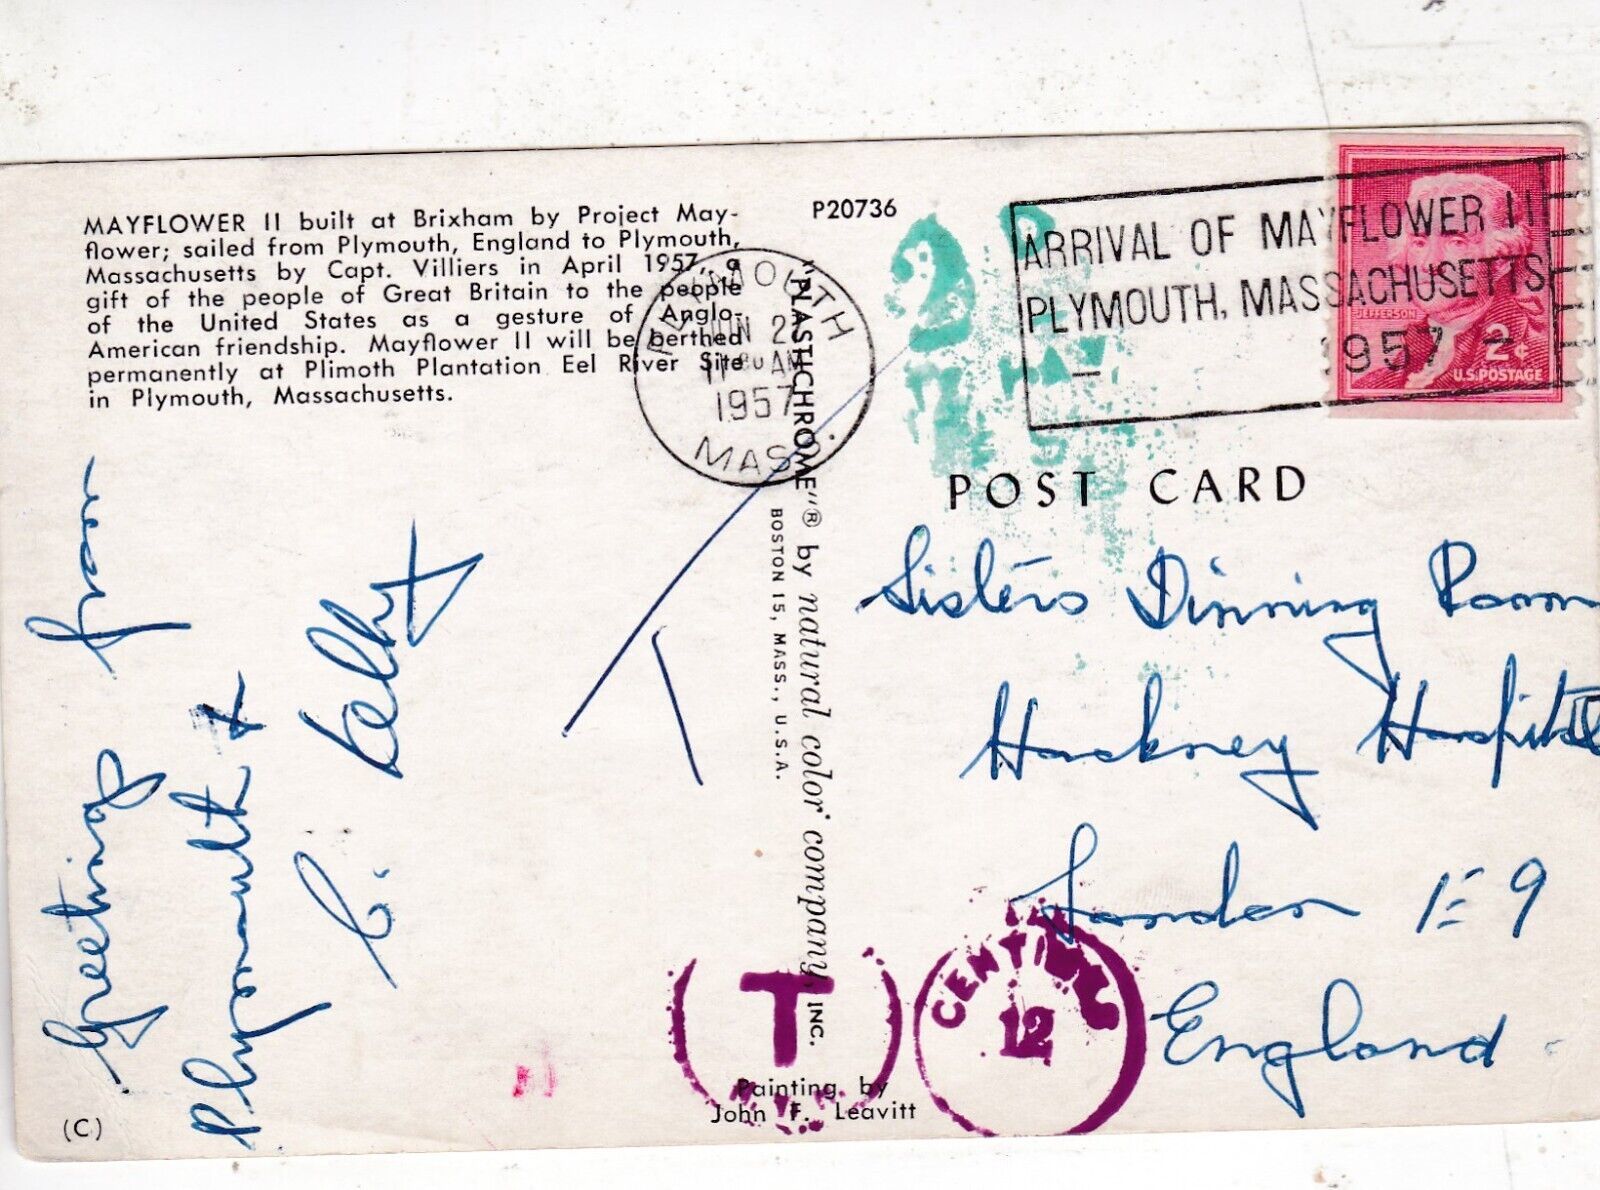 MAYFLOWER II built at Brixham by Project May-
flower; sailed from Plymouth, England to Plymouth,
Massachusetts by Capt. Villiers in April 1957, a
gift of the people of Great Britain to the people
of the United States as a gesture of Anglo-
American friendship. Mayflower II will be berthed
permanently at Plimoth Plantation Eel River Site
in Plymouth, Massachusetts.
P20736
PLYMOUTH
JUN 2
11 AM
1957
MASS.
ARRIVAL OF MAYFLOWER II
PLYMOUTH, MASSACHUSETTS
- 1957 -
JEFFERSON
2¢
U.S. POSTAGE
"PLASTICHROME"® by natural color company, INC.
BOSTON 15, MASS., U.S.A.
POST CARD
Sisters Dinning Room
Hackney Hospital
London E 9
England
Greetings from
Plymouth &
C.
T
T
N.Y.
CENTIMES
12
Painting by
John F. Leavitt
(C)